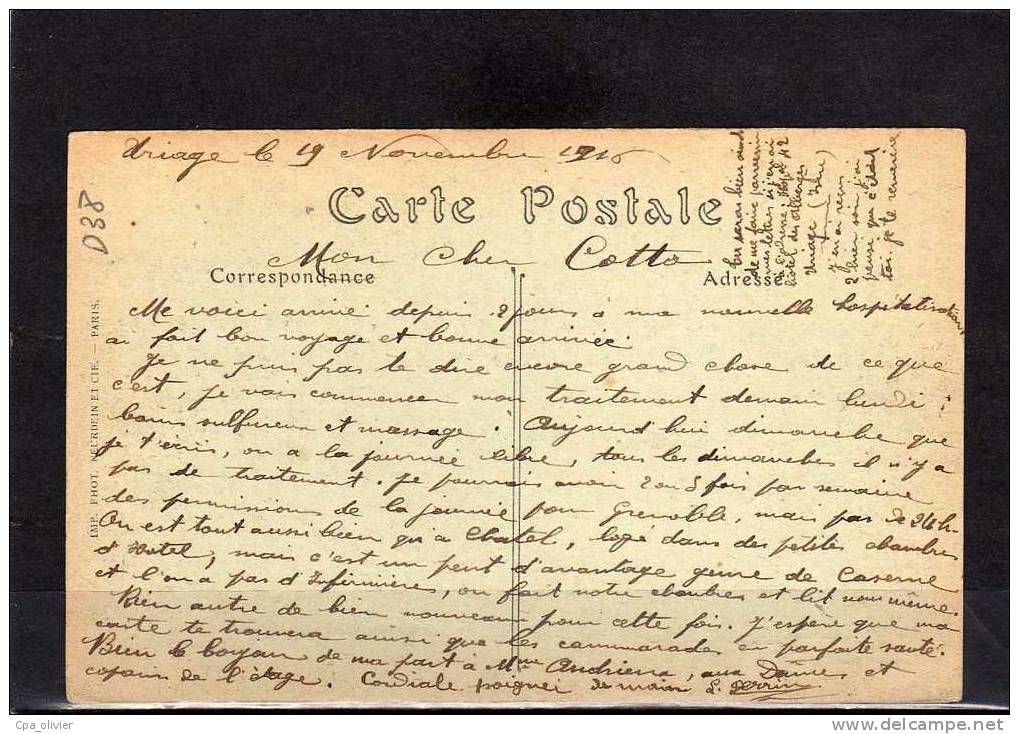 Uriage le 19 Novembre 1916
Carte Postale
Mon Cher Cotto
Correspondance
Adresse
Me voici arrivé depuis 2 jours a ma nouvelle hospitalisation
ai fait bon voyage et bonne arrivée.
Je ne puis pas te dire encore grand chose de ce que
c'est, je vais commencer mon traitement demain lundi :
bains sulfureux et massage. Aujourd'hui dimanche que
je t'écris, on a la journée libre, tous les dimanches il n'y a
pas de traitement. Je pourrais avoir 2 ou 3 fois par semaine
des permissions de la journée pour Grenoble, mais pas de 24h.
On est tout aussi bien qu'a Chatel, logé dans des petites chambres
d'Hotel, mais c'est un peut d'avantage genre de Caserne
et l'on a pas d'Infirmières, on fait notre chambres et lit nous même.
Rien autre de bien nouveau pour cette fois. J'espère que ma
carte te trouvera ainsi que les camarades en parfaite santé.
Bien le bonjour de ma part a Mme Andriena, aux Dames et
copains de l'étage. Cordiale poignée de main L. Perrin
tu seras bien aimable
de me faire parvenir
mes lettres si j'en ai
hotel des
Uriage (Isère)
j'en ai reçu
2 hier soir j'ai
pensé que c'était
toi. je te remercie
D38
IMP. PHOT. NEURDEIN ET CIE. — PARIS.
Cpa_olivier
http://www.delcampe.net